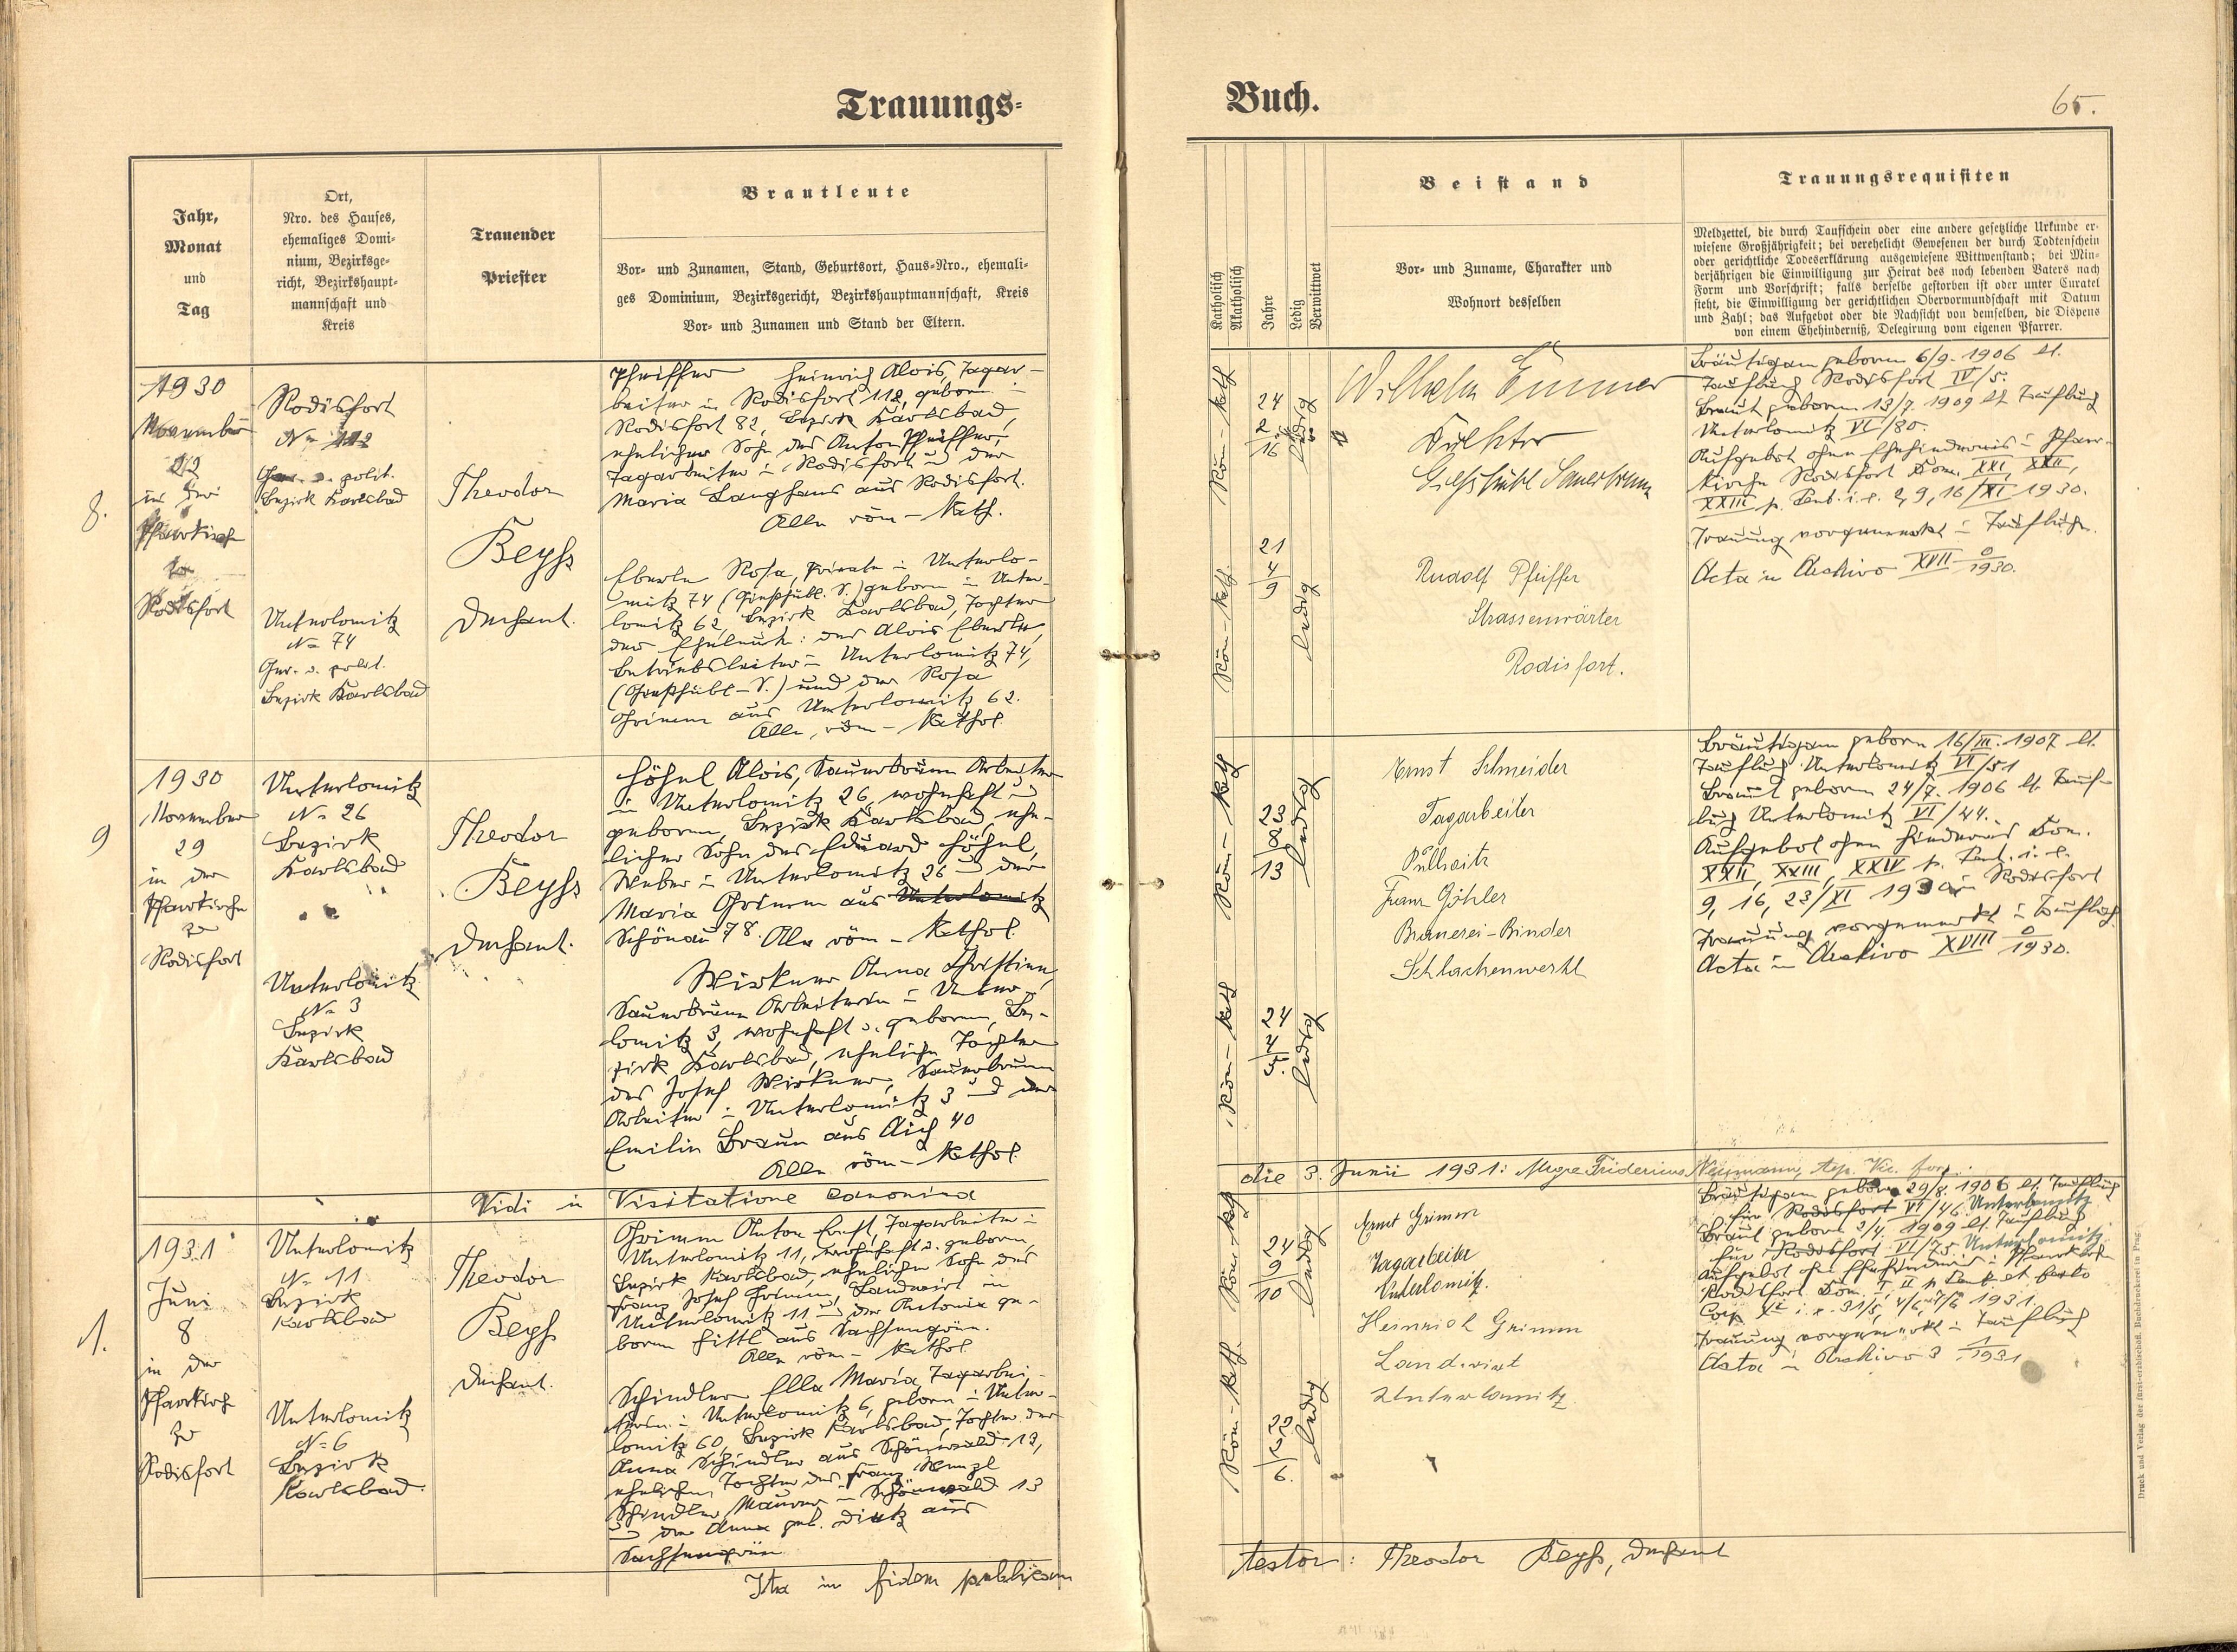 Trauungs-
Buch.
65.
Jahr,
Monat
und
Tag
Ort,
Nro. des Hauses,
ehemaliges Domi-
nium, Bezirksge-
richt, Bezirkshaupt-
mannschaft und
Kreis
Trauender
Priester
Brautleute
Vor- und Zunamen, Stand, Geburtsort, Haus-Nro., ehemali-
ges Dominium, Bezirksgericht, Bezirkshauptmannschaft, Kreis
Vor- und Zunamen und Stand der Eltern.
Katholisch
Akatholisch
Jahre
Ledig
Verwittwet
Beistand
Vor- und Zuname, Charakter und
Wohnort desselben
Trauungsrequisiten
Meldzettel, die durch Taufschein oder eine andere gesetzliche Urkunde er-
wiesene Großjährigkeit; bei verehelicht Gewesenen der durch Todtenschein
oder gerichtliche Todeserklärung ausgewiesene Wittwenstand; bei Min-
derjährigen die Einwilligung zur Heirat des noch lebenden Vaters nach
Form und Vorschrift; falls derselbe gestorben ist oder unter Curatel
steht, die Einwilligung der gerichtlichen Obervormundschaft mit Datum
und Zahl; das Aufgebot oder die Nachsicht von demselben, die Dispens
von einem Ehehinderniß, Delegirung vom eigenen Pfarrer.
8.
1930
November
22
in der
Pfarrkirche
zu
Rodisfort
Rodisfort
N= 112
Ger. u. polit.
Bezirk Karlsbad
Unterlomitz
N= 74
Ger. u. polit.
Bezirk Karlsbad
Theodor
Beyß
Dechant.
Pfeiffer Heinrich Alois, Tagar-
beiter in Rodisfort 112, geboren in
Rodisfort 82, Bezirk Karlsbad,
ehelicher Sohn des Anton Pfeiffer,
Tagarbeiter in Rodisfort und der
Maria Langhans aus Rodisfort.
Alle röm-kath.
Eberle Rosa, Private in Unterlo-
mitz 74 (Gießhübl. S.) geboren in Unter-
lomitz 62, Bezirk Karlsbad, Tochter
der Eheleute: des Alois Eberle,
Betriebsleiter in Unterlomitz 74,
(Gießhübl-S.) und der Rosa
Grimm aus Unterlomitz 62.
Alle röm-kathol.
Röm-kath
24
2
16
ledig
Röm-kath.
21
4
9
ledig
Wilhelm
Direktor
Gießhübl Sauerbrunn
Rudolf Pfeiffer
Strassenwärter
Rodisfort.
Bräutigam geboren 6/9. 1906 lt.
Taufbuch Rodisfort IV/5.
Braut geboren 13/7. 1909 lt Taufbuch
Unterlomitz VI/80.
Aufgebot ohne Ehehindernis in Pfarr-
kirche Rodisfort Dom. XXI, XXII,
XXIII p. Pent. i. e. 2, 9, 16/XI 1930.
Trauung vorgemerkt in Taufbuche.
Acta in Archivo XVII 0/1930.
9
1930
November
29
in der
Pfarrkirche
zu
Rodisfort
Unterlomitz
N= 26
Bezirk
Karlsbad
Unterlomitz
N= 3
Bezirk
Karlsbad
Theodor
Beyß
Dechant.
Höhnl Alois, Sauerbrunn Arbeiter
in Unterlomitz 26, wohnhaft und
geboren, Bezirk Karlsbad, ehe-
licher Sohn des Eduard Höhnl,
Weber in Unterlomitz 26 und der
Maria Grimm aus Unterlomitz
Schönau 78. Alle röm-kathol.
Wirkner Anna Christine,
Sauerbrunn Arbeiterin in Unter-
lomitz 3, wohnhaft u. geboren, Be-
zirk Karlsbad, eheliche Tochter
des Josef Wirkner, Sauerbrunn
Arbeiter in Unterlomitz 3 und der
Emilie Braun aus Aich 40
Alle röm-kathol.
Röm-kath
23
8
13
ledig
Röm-kath
24
4
5.
ledig
Ernst Schneider
Tagarbeiter
Pullwitz
Franz Göhler
Brauerei-Binder
Schlackenwerth
Bräutigam geboren 16/III. 1907 lt.
Taufbuch Unterlomitz VI/51
Braut geboren 24/7. 1906 lt. Tauf-
buch Unterlomitz VI/44.
Aufgebot ohne Hindernis Dom.
XXII, XXIII, XXIV p. Pent. i. e.
9, 16, 23/XI 1930 in Rodisfort
Trauung vorgemerkt in Taufbuch
Acta in Archivo XVIII 0/1930.
Vidi in Visitatione canonica
die 3. Junii 1931: Fridericus Neumann, Vic. for.
1.
1931
Juni
8
in der
Pfarrkirche
zu
Rodisfort
Unterlomitz
N= 11
Bezirk
Karlsbad
Unterlomitz
N= 6
Bezirk
Karlsbad.
Theodor
Beyß
Dechant.
Grimm Anton Ernst, Tagarbeiter in
Unterlomitz 11, wohnhaft u. geboren,
Bezirk Karlsbad, ehelicher Sohn des
Franz Josef Grimm, Landwirt in
Unterlomitz 11 und der Antonie ge-
boren Hittl aus Sachsengrün.
Alle röm-kathol.
Schindler Ella Maria, Tagarbei-
terin in Unterlomitz 6, geboren in Unter-
lomitz 60, Bezirk Karlsbad, Tochter der
Anna Schindler aus Schönwald 13,
ehelichen Tochter des Franz Wenzl
Schindler, Maurer in Schönwald 13
und der Anna geb. Dietz aus
Sachsengrün
Röm-kath
24
9
10
ledig
Röm-kath.
22
2
6.
ledig
Ernst Grimm
Tagarbeiter
Unterlomitz.
Heinrich Grimm
Landwirt
Unterlomitz.
Bräutigam geboren 29/8. 1906 lt. Taufbuch
für Rodisfort VI/46 Unterlomitz
Braut geboren 2/4. 1909 lt. Taufbuch
für Rodisfort VI/75. Unterlomitz.
Aufgebot ohne Ehehindernis in Pfarrkirche
Rodisfort Dom. I, II p Pent et festo
Corp. Xti i. e. 31/5, 4/6, 7/6 1931.
Trauung vorgemerkt in Taufbuch
Acta in Archivo 3 1/1931
Ita in fidem publicam
testor: Theodor Beyß, Dechant
Druck und Verlag der fürst-erzbischöfl. Buchdruckerei in Prag.